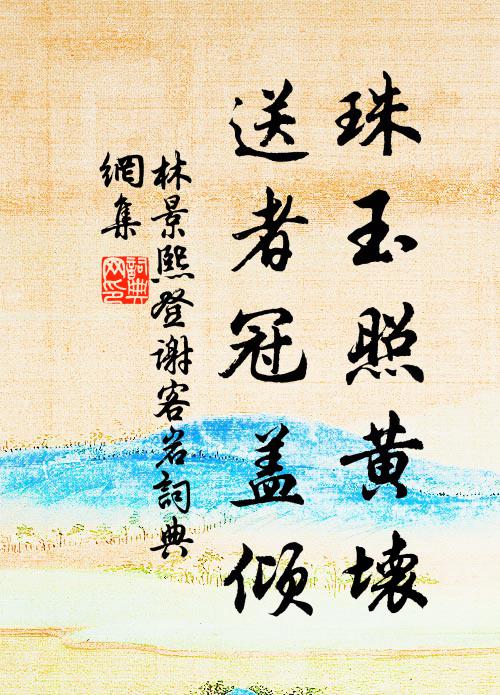 珠玉照黄壤
送者冠盖倾
林景熙登谢客岩詞典
網集
詞典網印